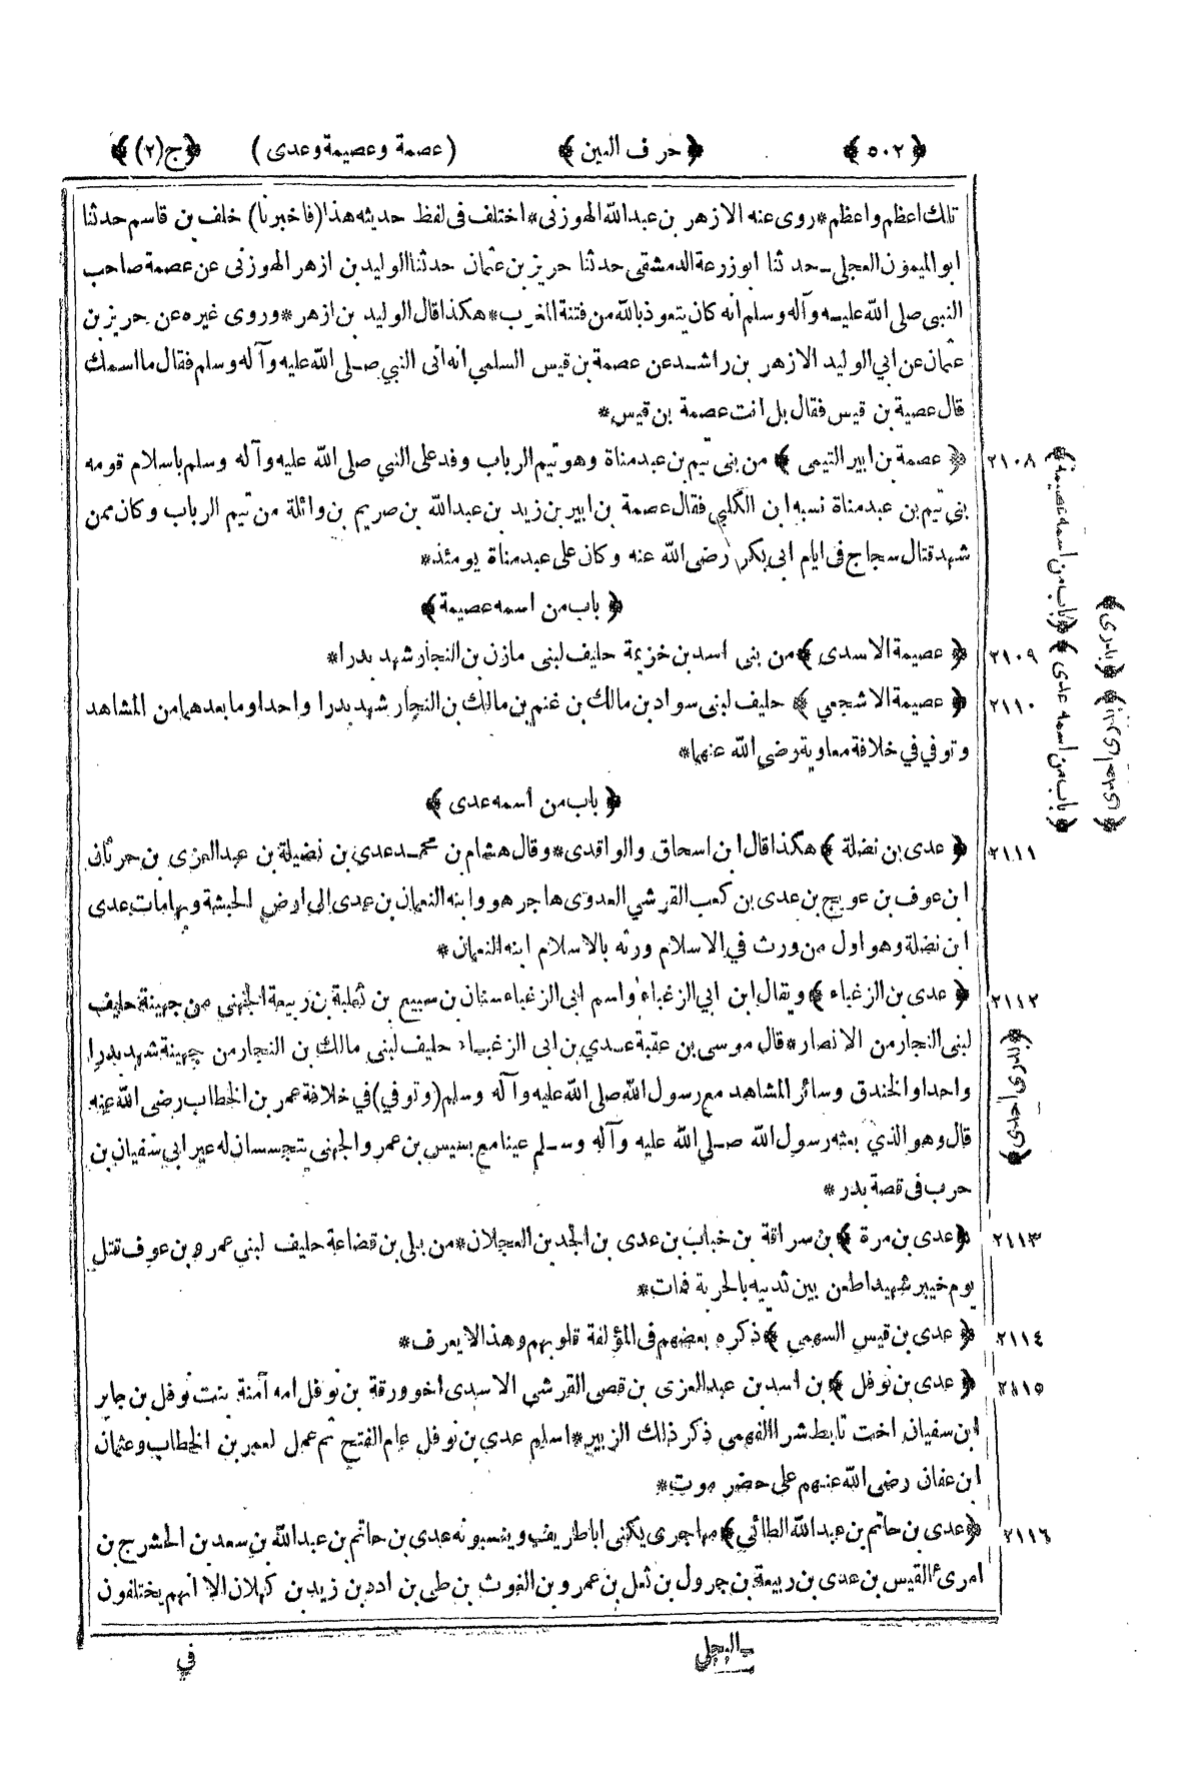 ﴿ ٥٠٢ ﴾ ﴿ حرف العين ﴾ (عصمة وعصيمة وعدى) ﴿ج(٢)﴾
تلك اعظم واعظم*روى عنه الازهر بن عبدالله الهوزنى*اختلف فى لفظ حديثه هذا(فاخبرنا) خلف بن قاسم حدثنا
ابوالميمون العجلى ــ حدثنا ابوزرعة الدمشقى حدثنا حريز بن عثمان حدثنا الوليد بن ازهر الهوزنى عن عصمة صاحب
النبى صلى الله عليه وآله وسلم انه كان يتعوذ بالله من فتنة المغرب*هكذا قال الوليد بن ازهر*وروى غيره عن حريز بن
عثمان عن ابي الوليد الازهر بن راشد عن عصمة بن قيس السلمي انه اتى النبي صلى الله عليه وآله وسلم فقال ما اسمك
قال عصية بن قيس فقال بل انت عصمة بن قيس*
٢١٠٨ ﴿ عصمة بن ابير التيمى ﴾ من بنى تيم بن عبد مناة وهو تيم الرباب وفد على النبي صلى الله عليه وآله وسلم باسلام قومه
بنى تيم بن عبد مناة نسبه ابن الكلبي فقال عصمة بن ابير بن زيد بن عبدالله بن صريم بن وائلة من تيم الرباب وكان ممن
شهد قتال سجاج فى ايام ابى بكر رضى الله عنه وكان على عبد مناة يومئذ*
﴿ باب من اسمه عصيمة ﴾
٢١٠٩ ﴿ عصيمة الاسدى ﴾ من بنى اسد بن خزيمة حليف لبنى مازن بن النجار شهد بدرا*
٢١١٠ ﴿ عصيمة الاشجعي ﴾ حليف لبنى سواد بن مالك بن غنم بن مالك بن النجار شهد بدرا واحدا وما بعدهما من المشاهد
وتوفي في خلافة معاوية رضى الله عنهما*
﴿ باب من اسمه عدى ﴾
٢١١١ ﴿ عدى بن نضلة ﴾ هكذا قال ابن اسحاق والواقدى*وقال هشام بن محمد عدي بن نضيلة بن عبدالعزى بن حرثان
ابن عوف بن عويج بن عدى بن كعب القرشي العدوى هاجر هو وابنه النعمان بن عدى الى ارض الحبشة وبها مات عدى
ابن نضلة وهو اول من ورث في الاسلام ورثه بالاسلام ابنه النعمان*
٢١١٢ ﴿ عدى بن الزغباء ﴾ ويقال ابن ابي الزغباء واسم ابى الزغباء سنان بن سبيع بن ثعلبة بن ربيعة الجهني من جهينة حليف
لبنى النجار من الانصار*قال موسى بن عقبة عدي بن ابى الزغباء حليف لبنى مالك بن النجار من جهينة شهد بدرا
واحدا والخندق وسائر المشاهد مع رسول الله صلى الله عليه وآله وسلم(وتوفي)في خلافة عمر بن الخطاب رضى الله عنه
قال وهو الذي بعثه رسول الله صلي الله عليه وآله وسلم عينا مع بسيس بن عمر والجهنى يتجسسان له عير ابي سفيان بن
حرب فى قصة بدر*
٢١١٣ ﴿عدى بن مرة ﴾ بن سراقة بن خباب بن عدى بن الجد بن العجلان*من بلى بن قضاعة حليف لبنى عمرو بن عوف قتل
يوم خيبر شهيدا طعن بين ثدييه بالحربة فمات*
٢١١٤ ﴿ عدى بن قيس السهمي ﴾ ذكره بعضهم فى المؤلفة قلوبهم وهذا لا يعرف*
٢١١٥ ﴿ عدى بن نوفل ﴾ بن اسد بن عبدالعزى بن قصى القرشي الاسدى اخو ورقة بن نوفل امه آمنة بنت نوفل بن جابر
ابن سفيان اخت تابط شرا الفهمى ذكر ذلك الزبير*اسلم عدي بن نوفل عام الفتح ثم عمل لعمر بن الخطاب وعثمان
ابن عفان رضى الله عنهم على حضر موت*
٢١١٦ ﴿عدى بن حاتم بن عبدالله الطائي﴾ مهاجرى يكنى اباطريف وينسبونه عدى بن حاتم بن عبدالله بن سعد بن الحشرج بن
امرئ القيس بن عدى بن ربيعة بن جرول بن ثعل بن عمرو بن الغوث بن طى بن ادد بن زيد بن كهلان الا انهم يختلفون
في
﴿باب من اسمه عصيمة﴾
﴿ باب من اسمه عدى ﴾